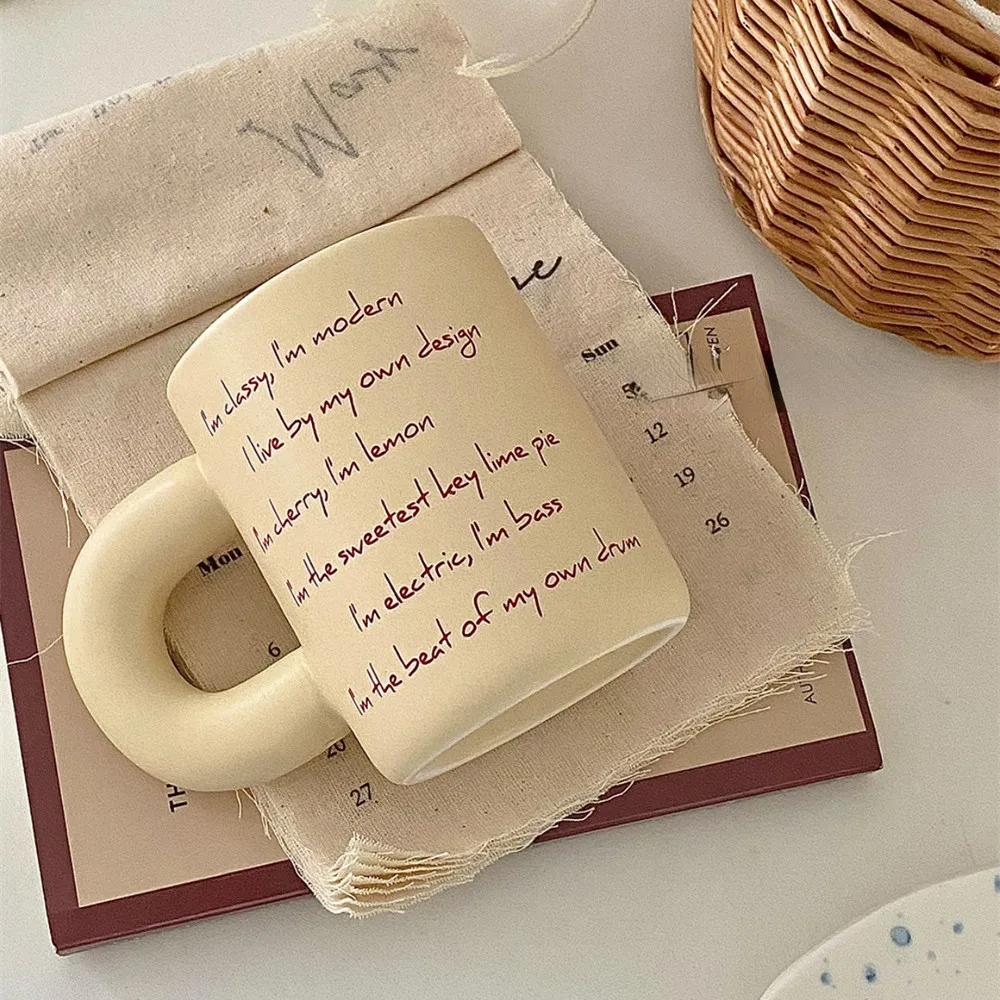 I'm classy, I'm modern
I live by my own design
I'm cherry, I'm lemon
I'm the sweetest key lime pie
I'm electric, I'm bass
I'm the beat of my own drum
Sun
5
12
19
26
Mon
6
20
27
TH